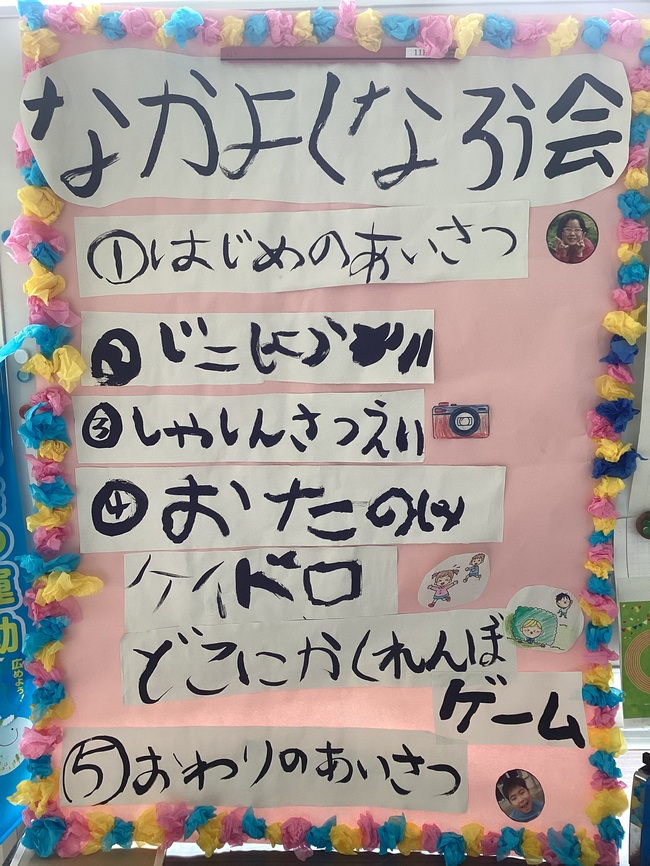 なかよしなろう会
①はじめのあいさつ
② じこしょうかい
③ しゃしんさつえい
④ おたのしみ
ケイドロ
どこにかくれんぼ
ゲーム
⑤ おわりのあいさつ
広めよう!